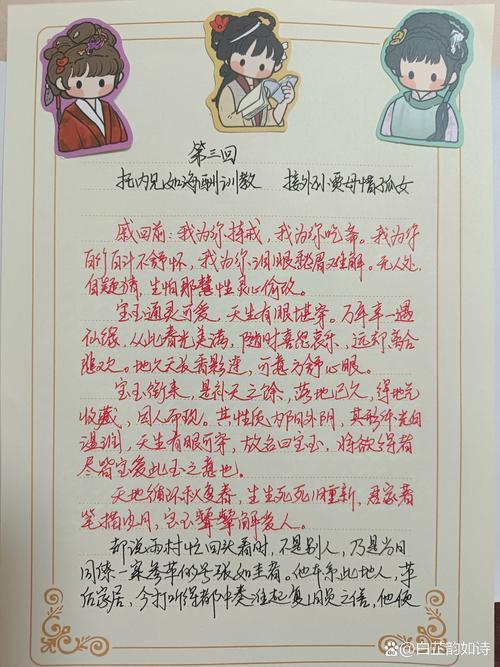 第三回
托内兄如海酬训教 接外孙贾母惜孤女
戚回前：我为你持戒，我为你吃斋。我为你
百行百计不舒怀，我为你泪眼愁眉难解。无人处，
自疑猜，生怕那慧性灵心偷改。
宝玉通灵可爱，天生有眼堪穿。万年幸一遇
仙缘，从此春光美满。随时喜怒哀乐，远却离合
悲欢。地久天长香影连，可意方舒心眼。
宝玉衔来，是补天之馀，落地已久，得地气
收藏，因人而现。其性质内阳外阴，其形体光白
温润，天生有眼可穿，故名曰宝玉，将欲得者
尽皆宝爱此玉之意也。
天地循环秋复春，生生死死旧重新。君家着
笔描风月，宝玉颦颦解爱人。
却说雨村忙回头看时，不是别人，乃是当日
同僚一案参革的号张如圭者。他本系此地人，革
后家居，今打听得都中奏准起复旧员之信，他便
@白芷韵如诗